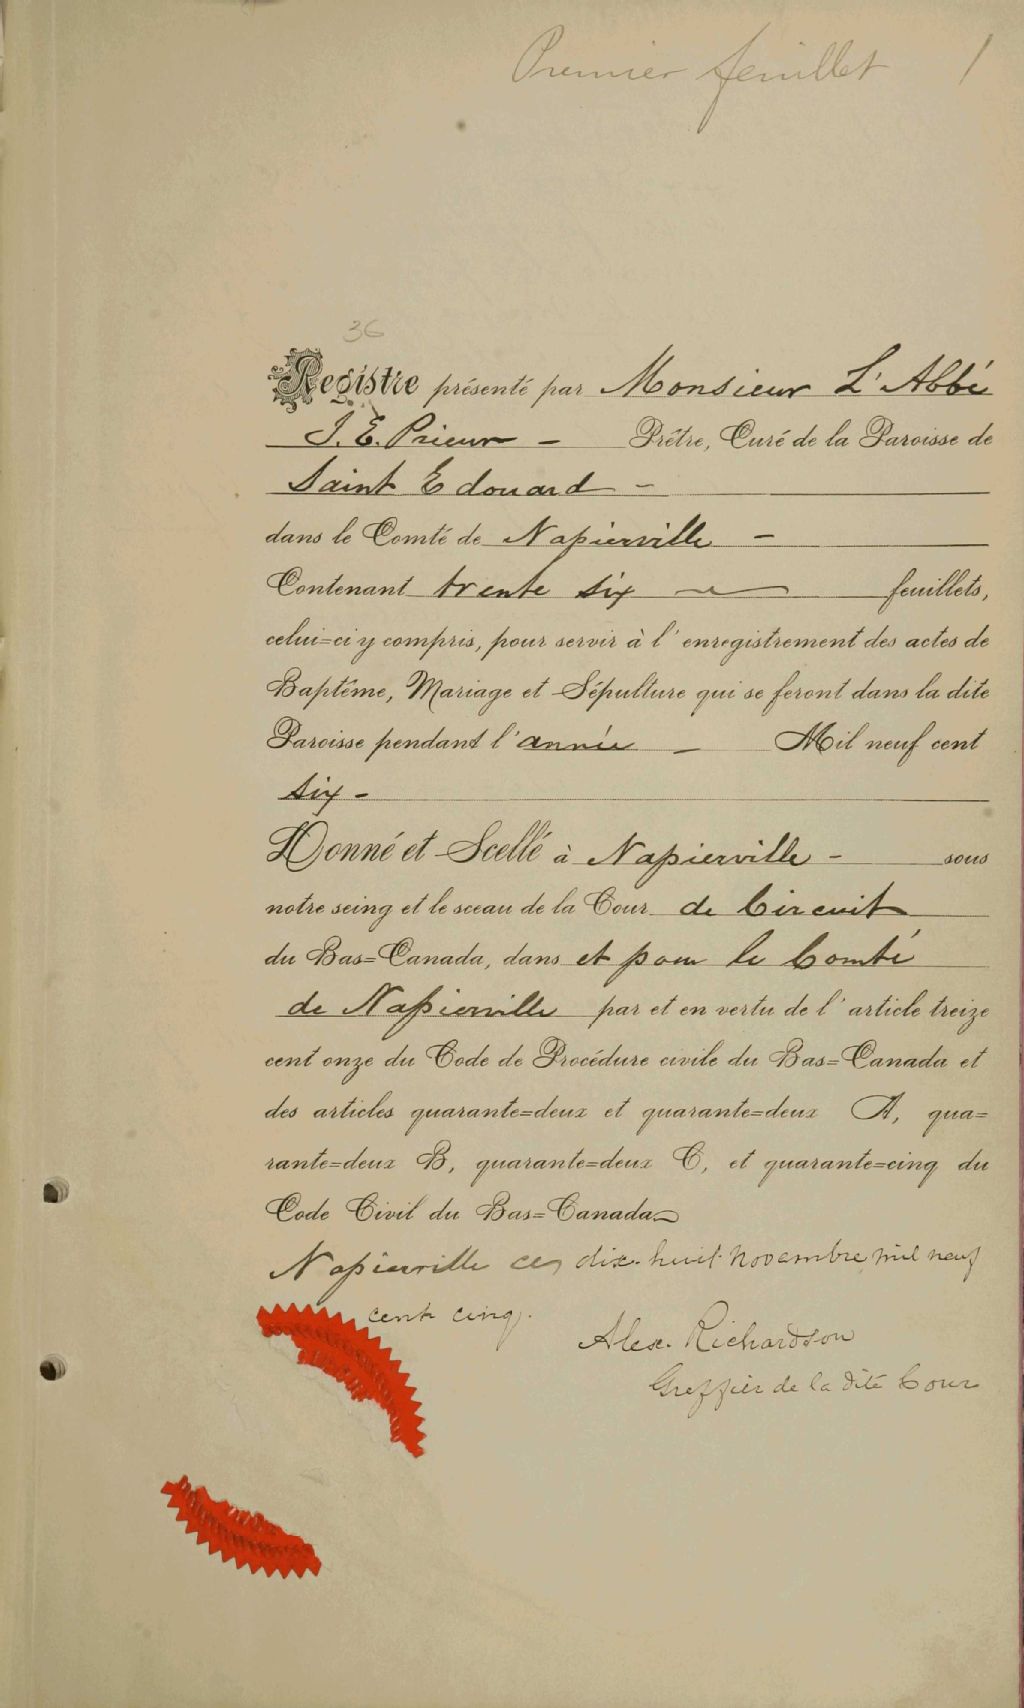 Premier feuillet 1
36
Registre présenté par Monsieur L'Abbé
J. E. Prieur - Prêtre, Curé de la Paroisse de
Saint Edouard -
dans le Comté de Napierville -
Contenant trente six feuillets,
celui=ci y compris, pour servir à l'enregistrement des actes de
Baptême, Mariage et Sépulture qui se feront dans la dite
Paroisse pendant l'année - Mil neuf cent
six -
Donné et Scellé à Napierville - sous
notre seing et le sceau de la Cour de Circuit
du Bas=Canada, dans et pour le Comté
de Napierville par et en vertu de l'article treize
cent onze du Code de Procédure civile du Bas=Canada et
des articles quarante=deux et quarante=deux A, qua=
rante=deux B, quarante=deux C, et quarante=cinq du
Code Civil du Bas=Canada
Napierville ce dix-huit novembre mil neuf
cent cinq.
Alex. Richardson
Greffier de la dite Cour